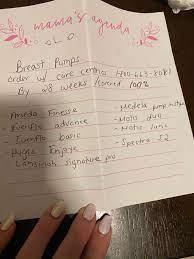 mama's agenda
Breast Pumps
order w/ care centrix
By 28 weeks covered 100%
Ameda Finesse
- Medela pump
- Evenflo advance
- Motif duo
- Evenflo basic
- Motif luna
- Hygeia Enjoye
- Spectra S2
Lansinoh signature pro